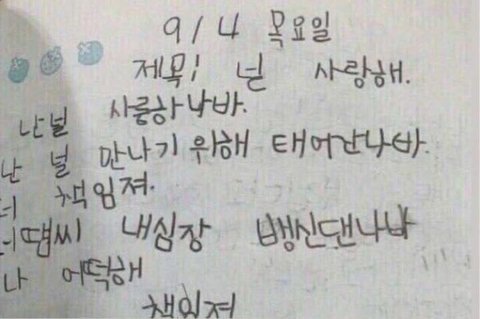 9/4 목요일
제목! 넌 사랑해.
난널 사룽하나바.
난 널 만나기 위해 태어간나바.
너 책임져.
너떔씨 내심장 뱅신댄나바
나 어떡해
책임져